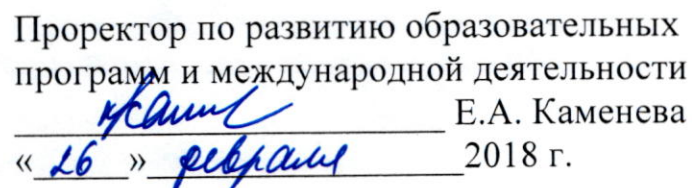 Проректор по развитию образовательных
программ и международной деятельности
Е.А. Каменева
«26» февраля 2018 г.